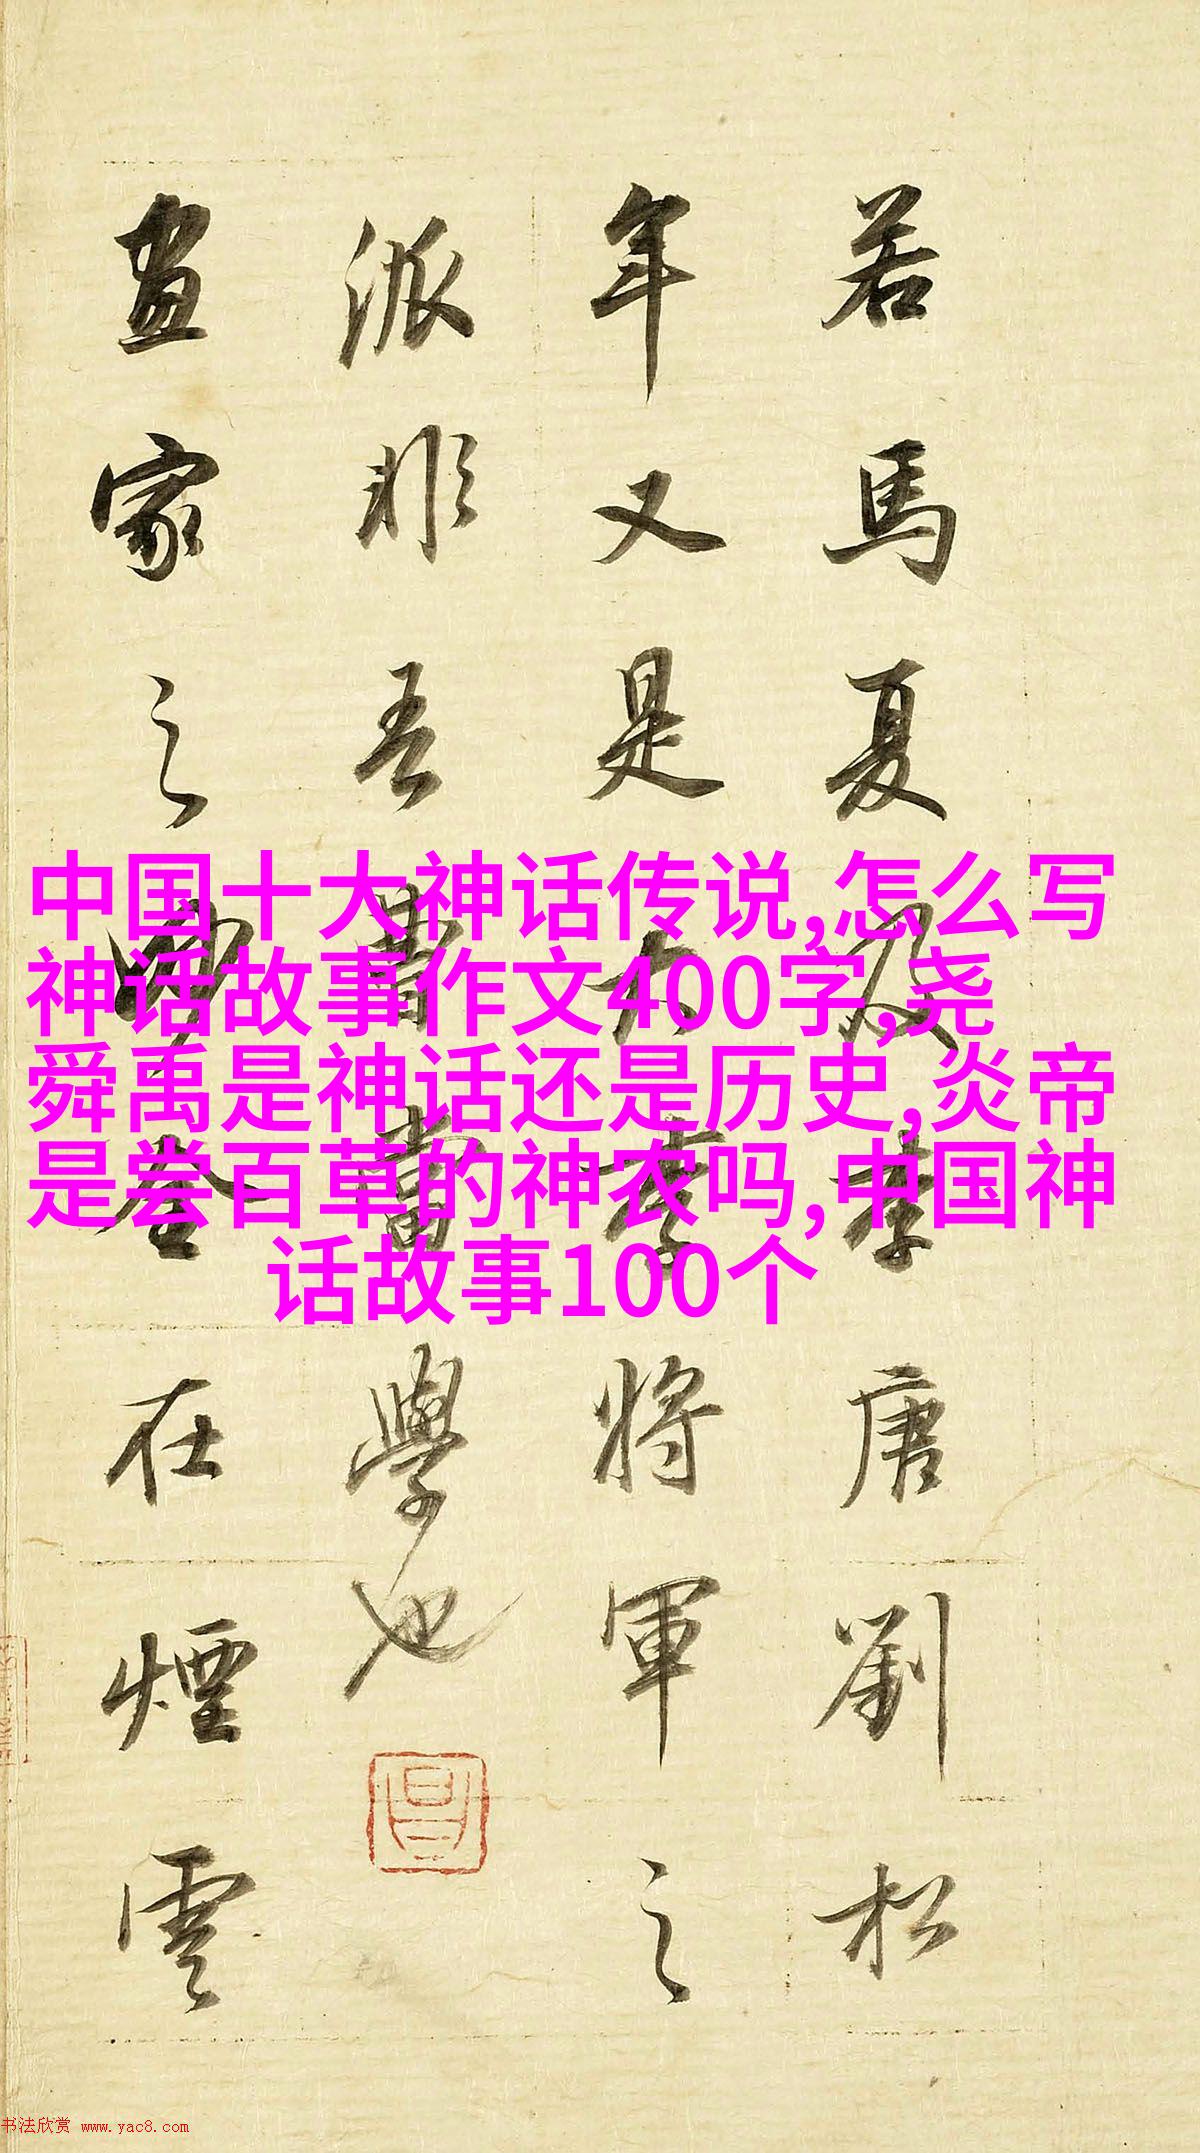 若馬夏及李唐劉松
年又是大李將軍之
派非吾曹當學也
畫家之妙全在煙雲
中国十大神话传说,怎么写
神话故事作文400字,尧
舜禹是神话还是历史,炎帝
是尝百草的神农吗,中国神
话故事100个
书法欣赏 www.yac8.com